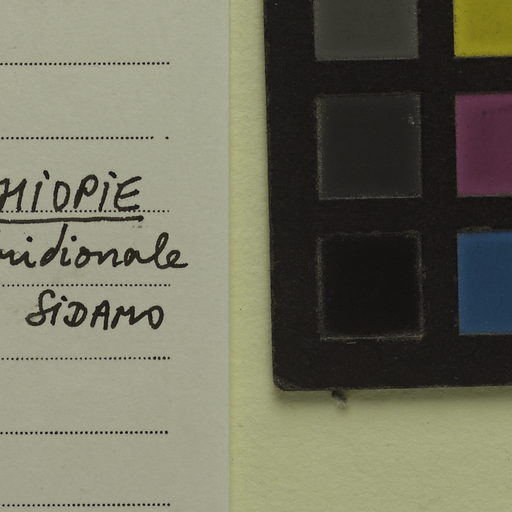 HIOPIE
ridionale
SIDAMO